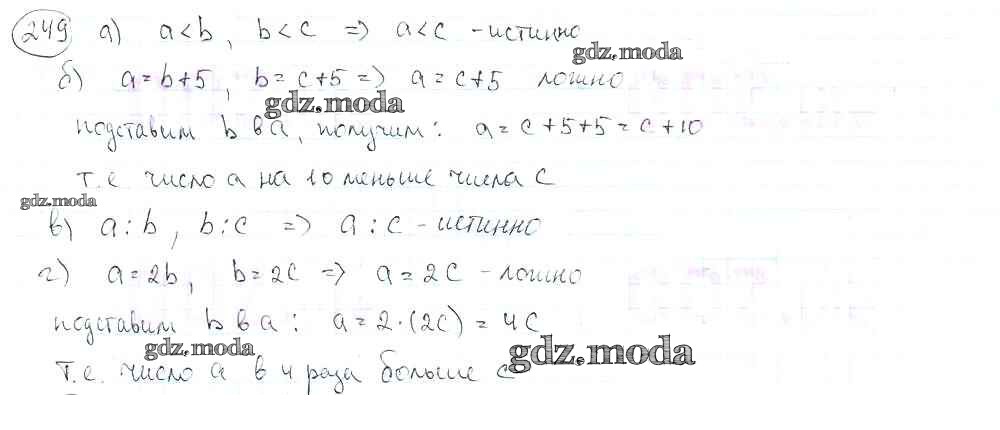 249 а) a < b, b < c => a < c - истинно
gdz.moda
б) a = b+5, b = c+5 => a = c+5 ложно
gdz.moda
подставим b в a, получим: a = c+5+5 = c+10
т.е. число a на 10 меньше числа c
gdz.moda
в) a : b, b : c => a : c - истинно
г) a = 2b, b = 2c => a = 2c - ложно
подставим b в a: a = 2·(2c) = 4c
gdz.moda
gdz.moda
т.е. число a в 4 раза больше c